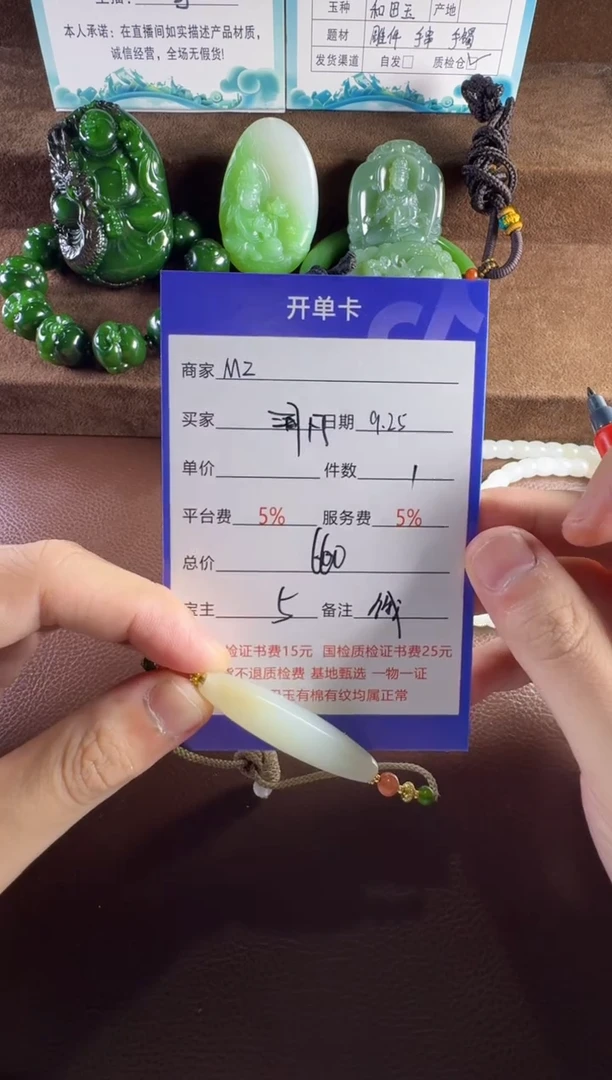 本人承诺：在直播间如实描述产品材质，
诚信经营，全场无假货！
玉种 和田玉 产地
题材 雕件 手串 手镯
发货渠道 自发□ 质检仓☑
开单卡
商家 MZ
买家 日期 9.25
单价 件数 1
平台费 5% 服务费 5%
总价 660
宝主 5 备注 俄
检证书费15元 国检质检证书费25元
不退质检费 基地甄选 一物一证
玉有棉有纹均属正常